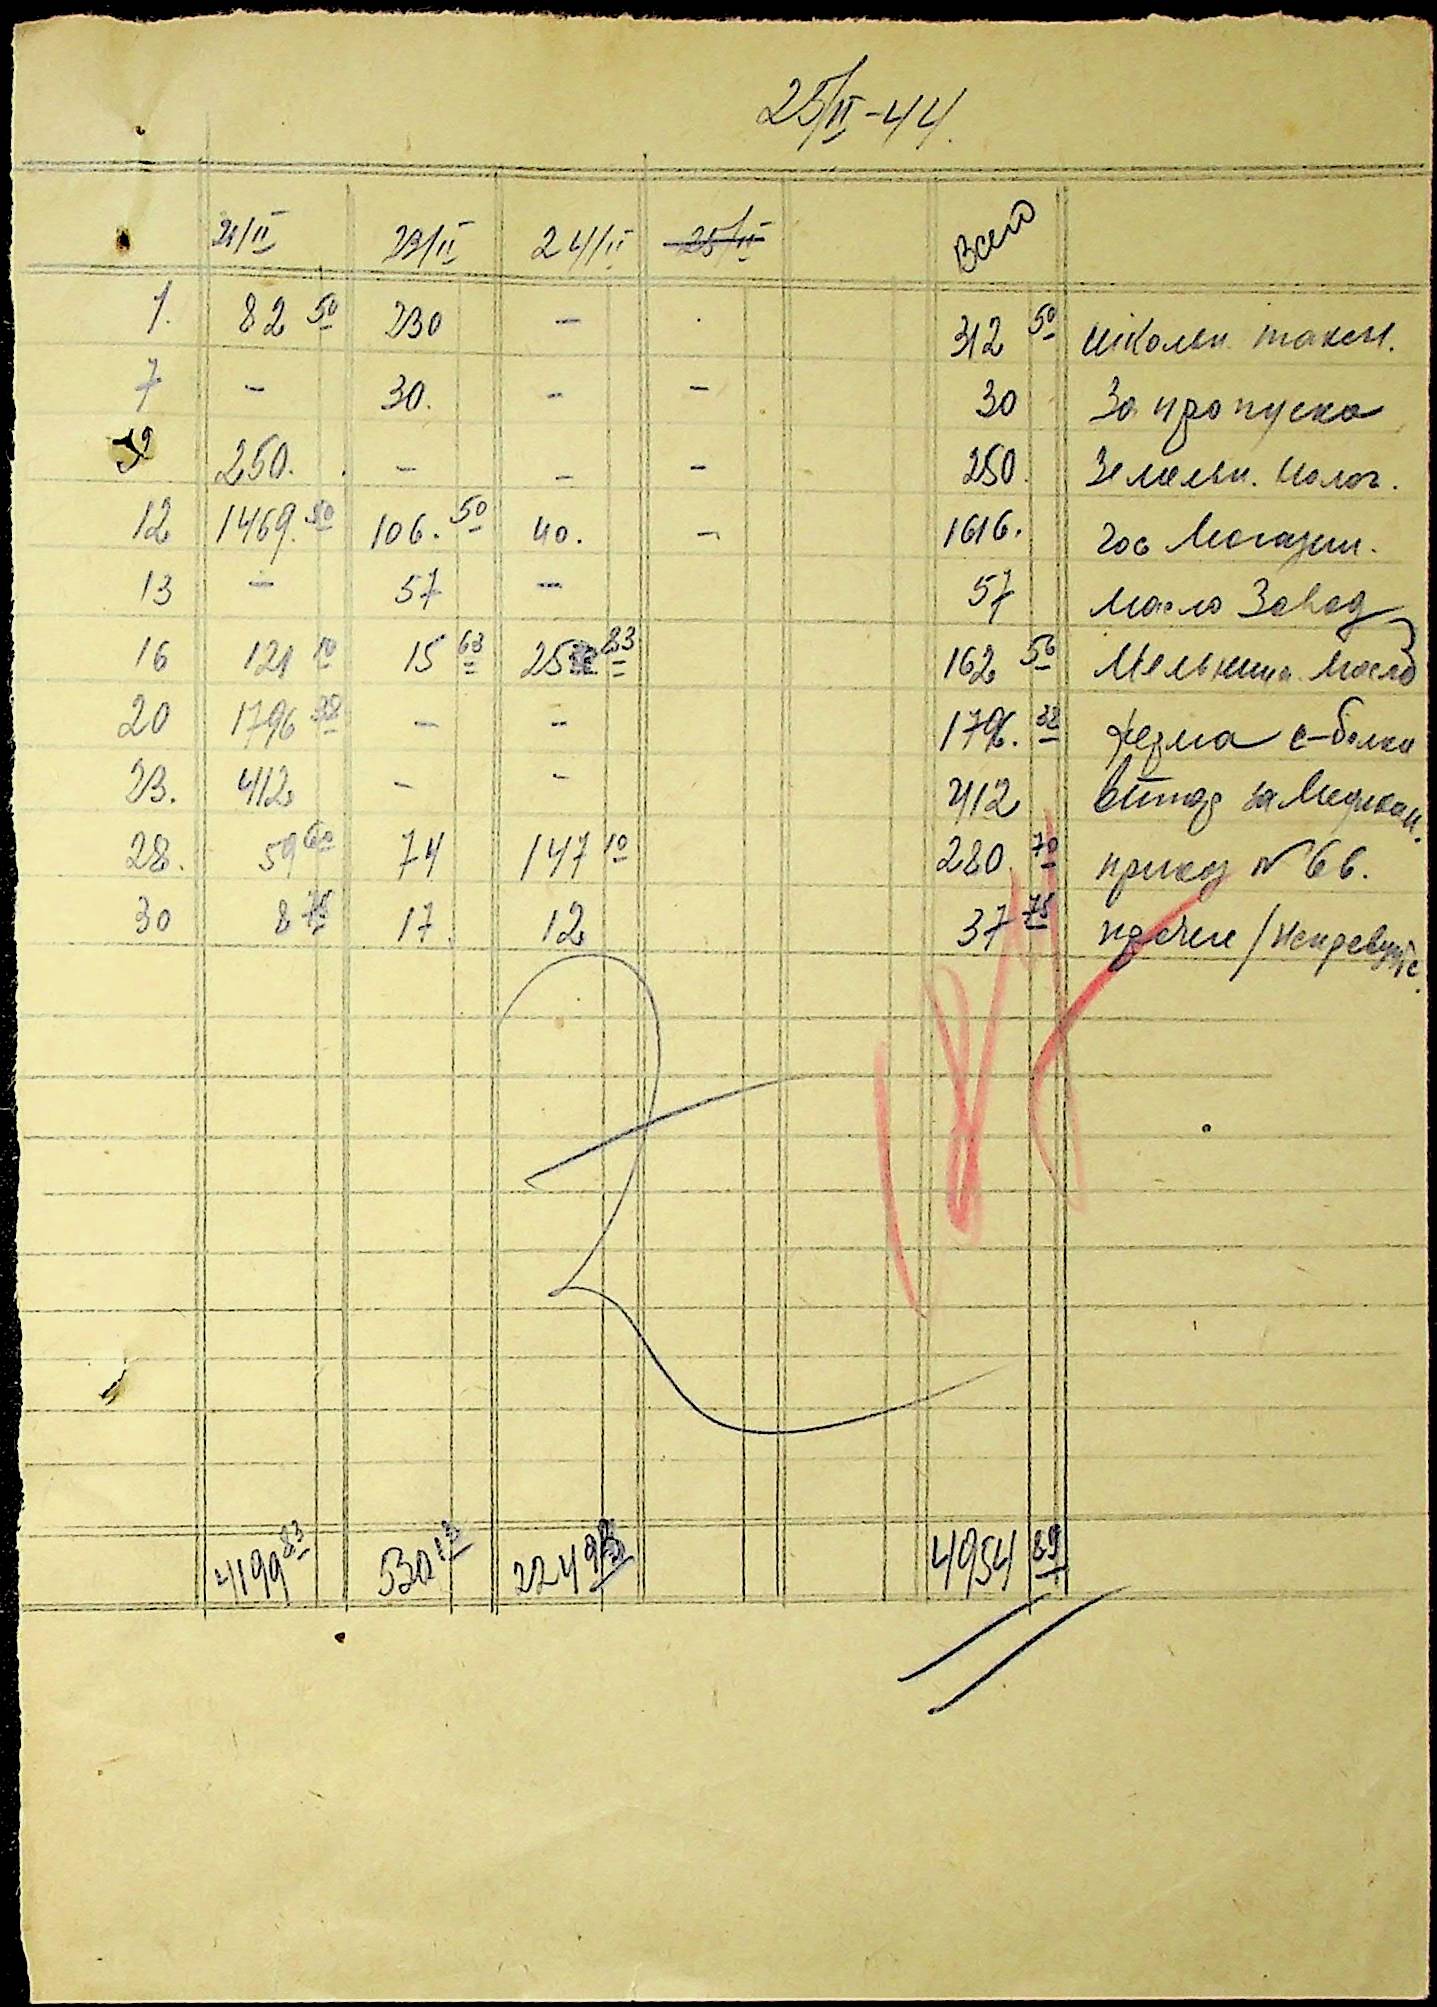 25/II-44.
21/II 23/II 24/II 25/II Всего
1. 82 50 230 - 312 50 Школьн. такси.
7 - 30. - - 30 За пропуска
250. - - - 250. Земельн. налог.
12 1469. 50 106. 50 40. - 1616. Гос Магазин.
13 - 57 - 57 Масло Завод
16 121 10 15 63 25 83 162 56 Мельница масло
20 1796 38 - - 1796. 38 ферма с-балка
23. 412 - - 412 за Медикам.
28. 59 60 74 147 10 280. 70 приказ № 66.
30 8 75 17. 12 37 75 прочие
4199 83 530 13 224 93 4954 89